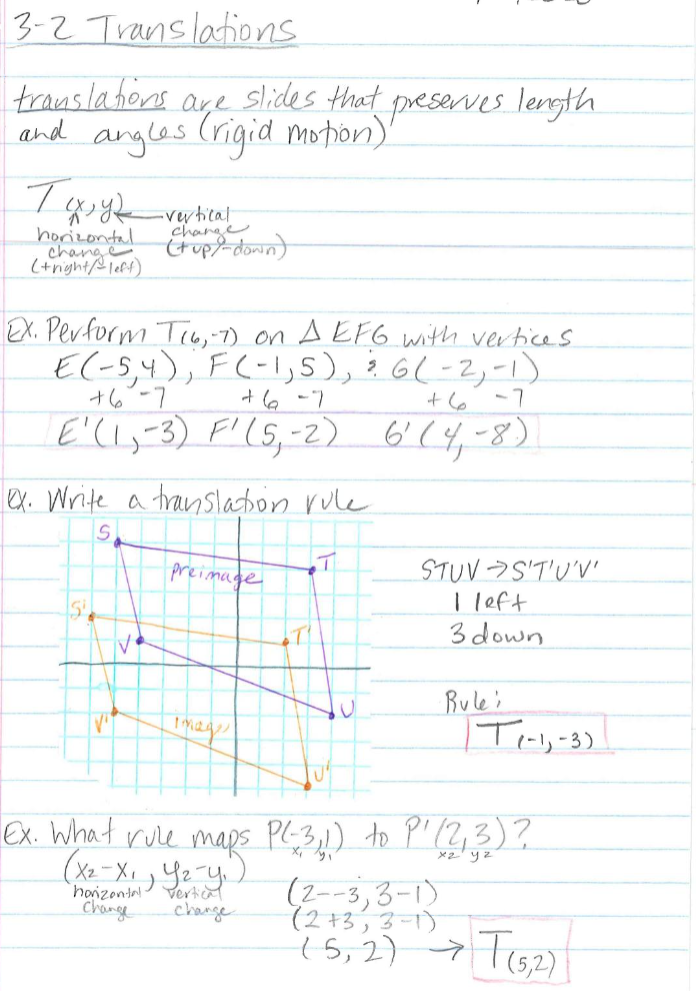 3-2 Translations
translations are slides that preserves length
and angles (rigid motion)
T(x,y) ← vertical change (+up/-down)
horizontal change (+right/-left)
Ex. Perform T(6,-7) on Δ EFG with vertices
E(-5,4), F(-1,5), & G(-2,-1)
+6 -7 +6 -7 +6 -7
E'(1,-3) F'(5,-2) G'(4,-8)
Ex. Write a translation rule
S
preimage
T
S'
T'
V
U
V'
image
U'
STUV → S'T'U'V'
1 left
3 down
Rule:
T(-1,-3)
Ex. What rule maps P(-3,1) to P'(2,3)?
x₁ y₁ x₂ y₂
(x₂-x₁, y₂-y₁)
horizontal change vertical change
(2--3, 3-1)
(2+3, 3-1)
(5,2) → T(5,2)